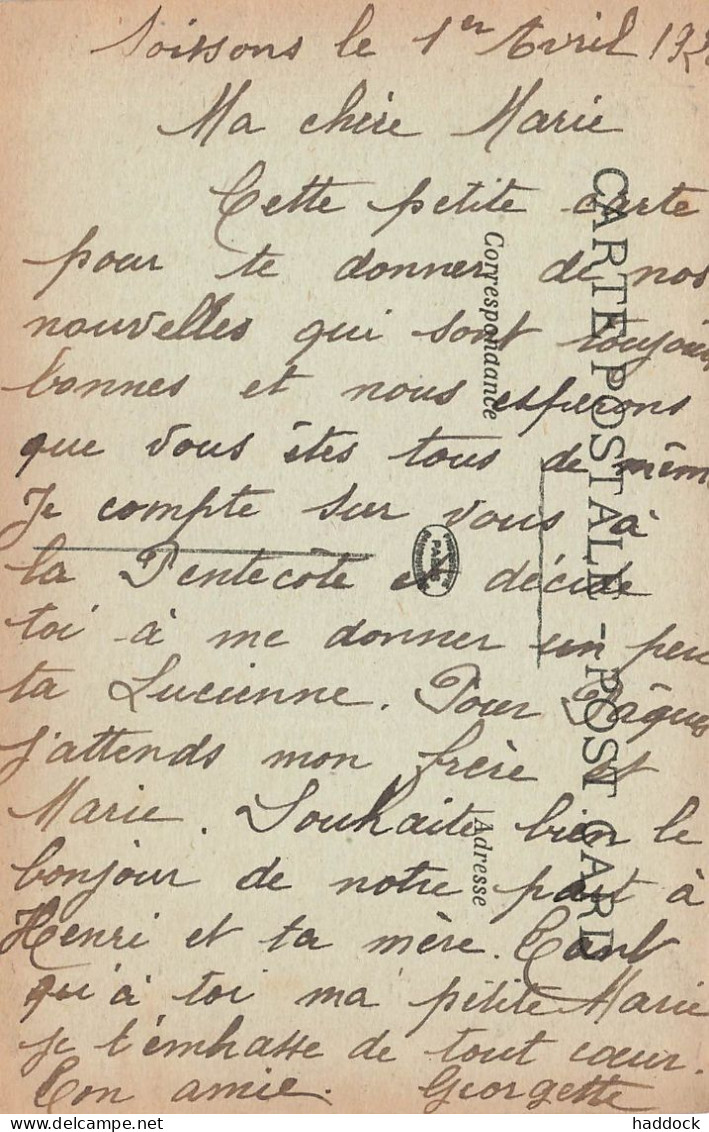 Soissons le 1er Avril
Ma chère Marie
Cette petite carte
pour te donner de nos
nouvelles qui sont toujours
bonnes et nous esperons
que vous êtes tous de même
Je compte sur vous à
la Pentecôte et décide
toi à me donner un peu
ta Lucienne. Pour Pâques
j'attends mon frère et
Marie. Souhaite bien le
bonjour de notre part à
Henri et ta mère. Tant
qu'à toi ma petite Marie
je t'embasse de tout cœur.
Ton amie. Georgette
CARTE POSTALE - POST CARD
Correspondance
Adresse
PARIS
haddock